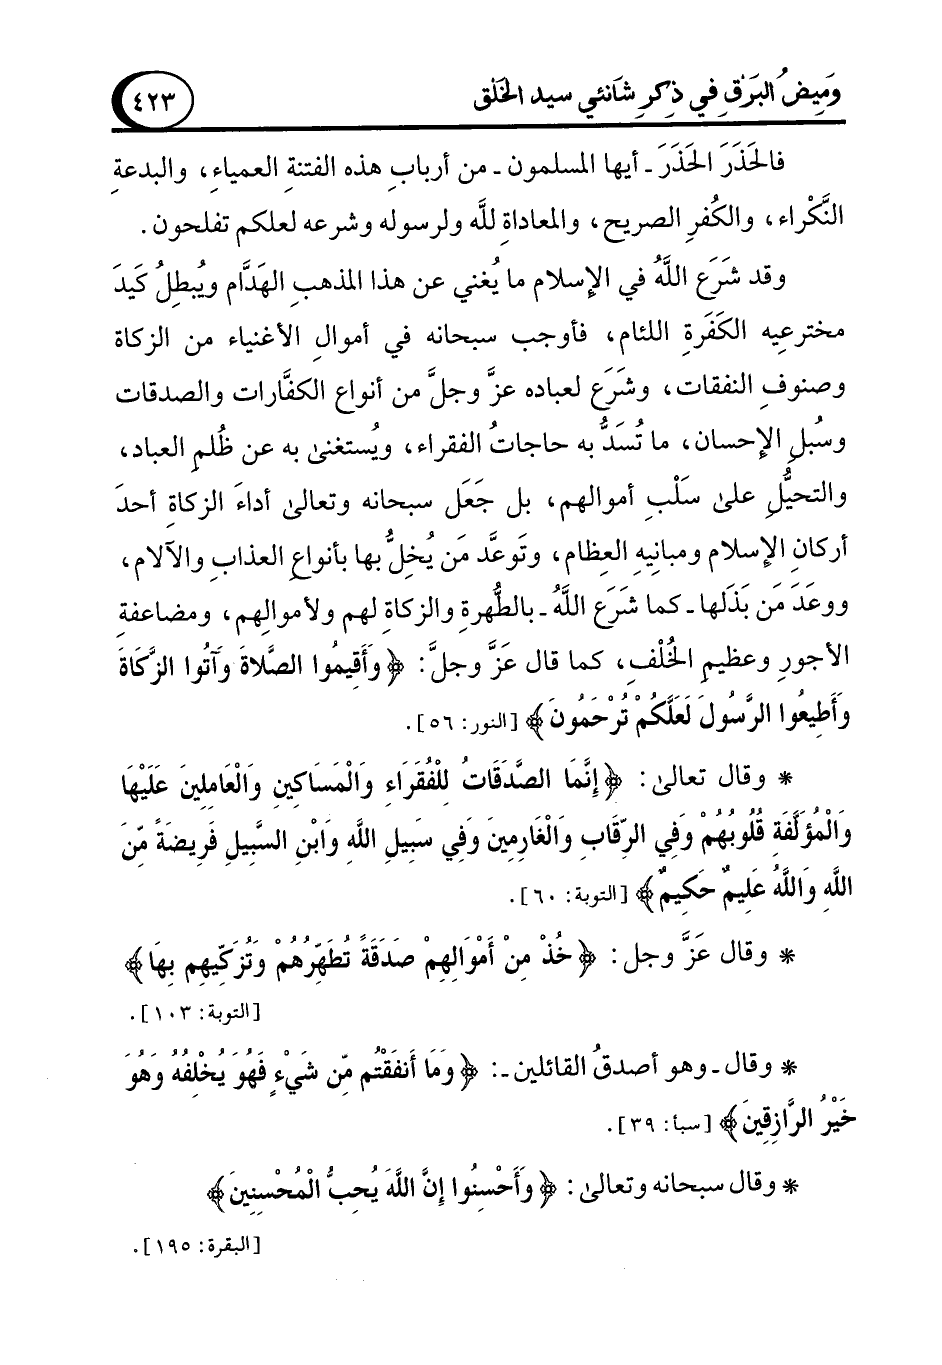 وَمِيضُ البَرَقِ في ذِكرِ شَانئي سيد الخَلْق
٤٢٣
فالحَذَرَ الحَذَرَ ـ أيها المسلمون ـ من أربابِ هذه الفتنةِ العمياءِ، والبدعةِ
النَّكْراء، والكُفرِ الصريح، والمعاداةِ للَّه ولرسوله وشرعه لعلكم تفلحون.
وقد شَرَع اللَّهُ في الإسلام ما يُغني عن هذا المذهبِ الهَدَّام ويُبطِلُ كَيدَ
مخترعيه الكَفَرةِ اللئام، فأوجب سبحانه في أموالِ الأغنياء من الزكاة
وصنوفِ النفقات، وشَرَع لعباده عزَّ وجلَّ من أنواع الكفَّارات والصدقات
وسُبلِ الإحسان، ما تُسَدُّ به حاجاتُ الفقراء، ويُستغنىٰ به عن ظُلمِ العباد،
والتحيُّلِ علىٰ سَلْبِ أموالهم، بل جَعَل سبحانه وتعالىٰ أداءَ الزكاةِ أحدَ
أركانِ الإسلام ومبانيهِ العِظام، وتَوعَّد مَن يُخِلُّ بها بأنواعِ العذابِ والآلام،
ووعَدَ مَن بَذَلها ـ كما شَرَع اللَّهُ ـ بالطُّهرةِ والزكاةِ لهم ولأموالِهم، ومضاعفةِ
الأجورِ وعظيمِ الخُلْفِ، كما قال عَزَّ وجلَّ: ﴿وَأَقِيمُوا الصَّلاةَ وَآتُوا الزَّكَاةَ
وَأَطِيعُوا الرَّسُولَ لَعَلَّكُمْ تُرْحَمُونَ﴾ [النور: ٥٦].
* وقال تعالىٰ: ﴿إِنَّمَا الصَّدَقَاتُ لِلْفُقَرَاءِ وَالْمَسَاكِينِ وَالْعَامِلِينَ عَلَيْهَا
وَالْمُؤَلَّفَةِ قُلُوبُهُمْ وَفِي الرِّقَابِ وَالْغَارِمِينَ وَفِي سَبِيلِ اللَّهِ وَابْنِ السَّبِيلِ فَرِيضَةً مِّنَ
اللَّهِ وَاللَّهُ عَلِيمٌ حَكِيمٌ﴾ [التوبة: ٦٠].
* وقال عَزَّ وجل: ﴿خُذْ مِنْ أَمْوَالِهِمْ صَدَقَةً تُطَهِّرُهُمْ وَتُزَكِّيهِم بِهَا﴾
[التوبة: ١٠٣].
* وقال ـ وهو أصدقُ القائلين ـ: ﴿وَمَا أَنفَقْتُم مِّن شَيْءٍ فَهُوَ يُخْلِفُهُ وَهُوَ
خَيْرُ الرَّازِقِينَ﴾ [سبأ: ٣٩].
* وقال سبحانه وتعالىٰ: ﴿وَأَحْسِنُوا إِنَّ اللَّهَ يُحِبُّ الْمُحْسِنِينَ﴾
[البقرة: ١٩٥].